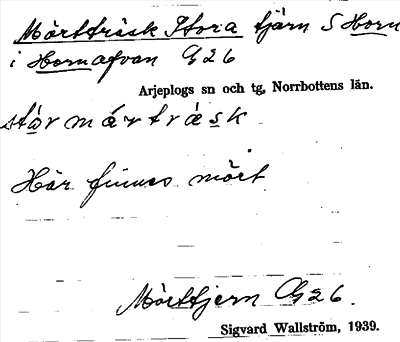 Mörtträsk Stora tjärn S Horn
i Hornafvan G26
Arjeplogs sn och tg, Norrbottens län.
stòrmártrǽsk
Här finnes mört
Mörttjern G26.
Sigvard Wallström, 1939.